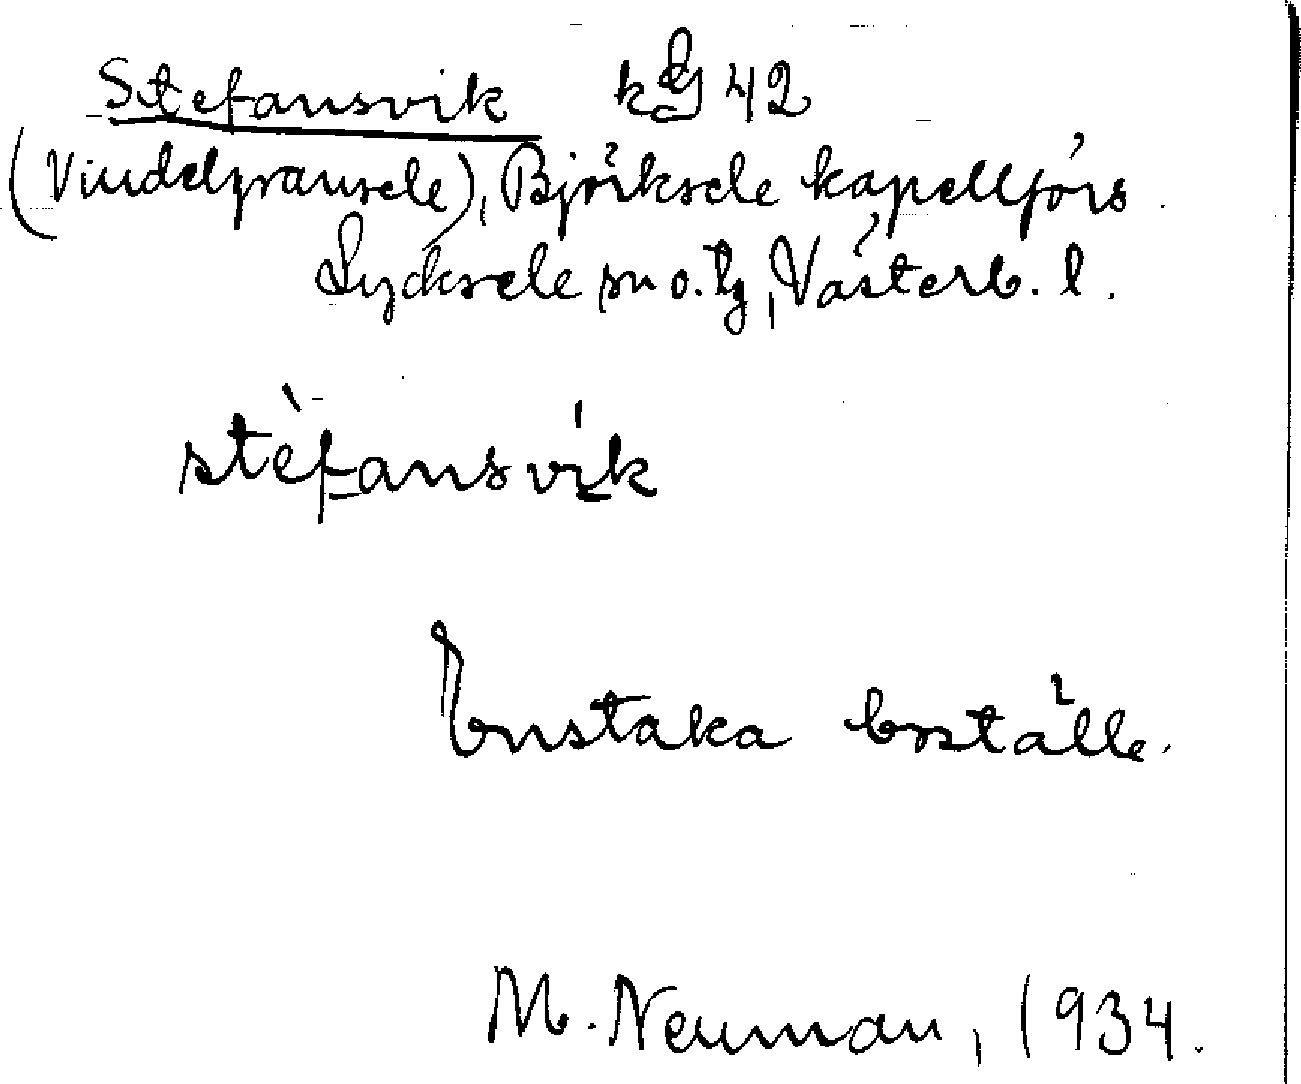 Stefansvik 42
(Vindelgransele), Björksele kapellförs.
Lycksele sn o. tg, Västerb. l.
stèfansvík
Enstaka boställe.
M. Neuman, 1934.